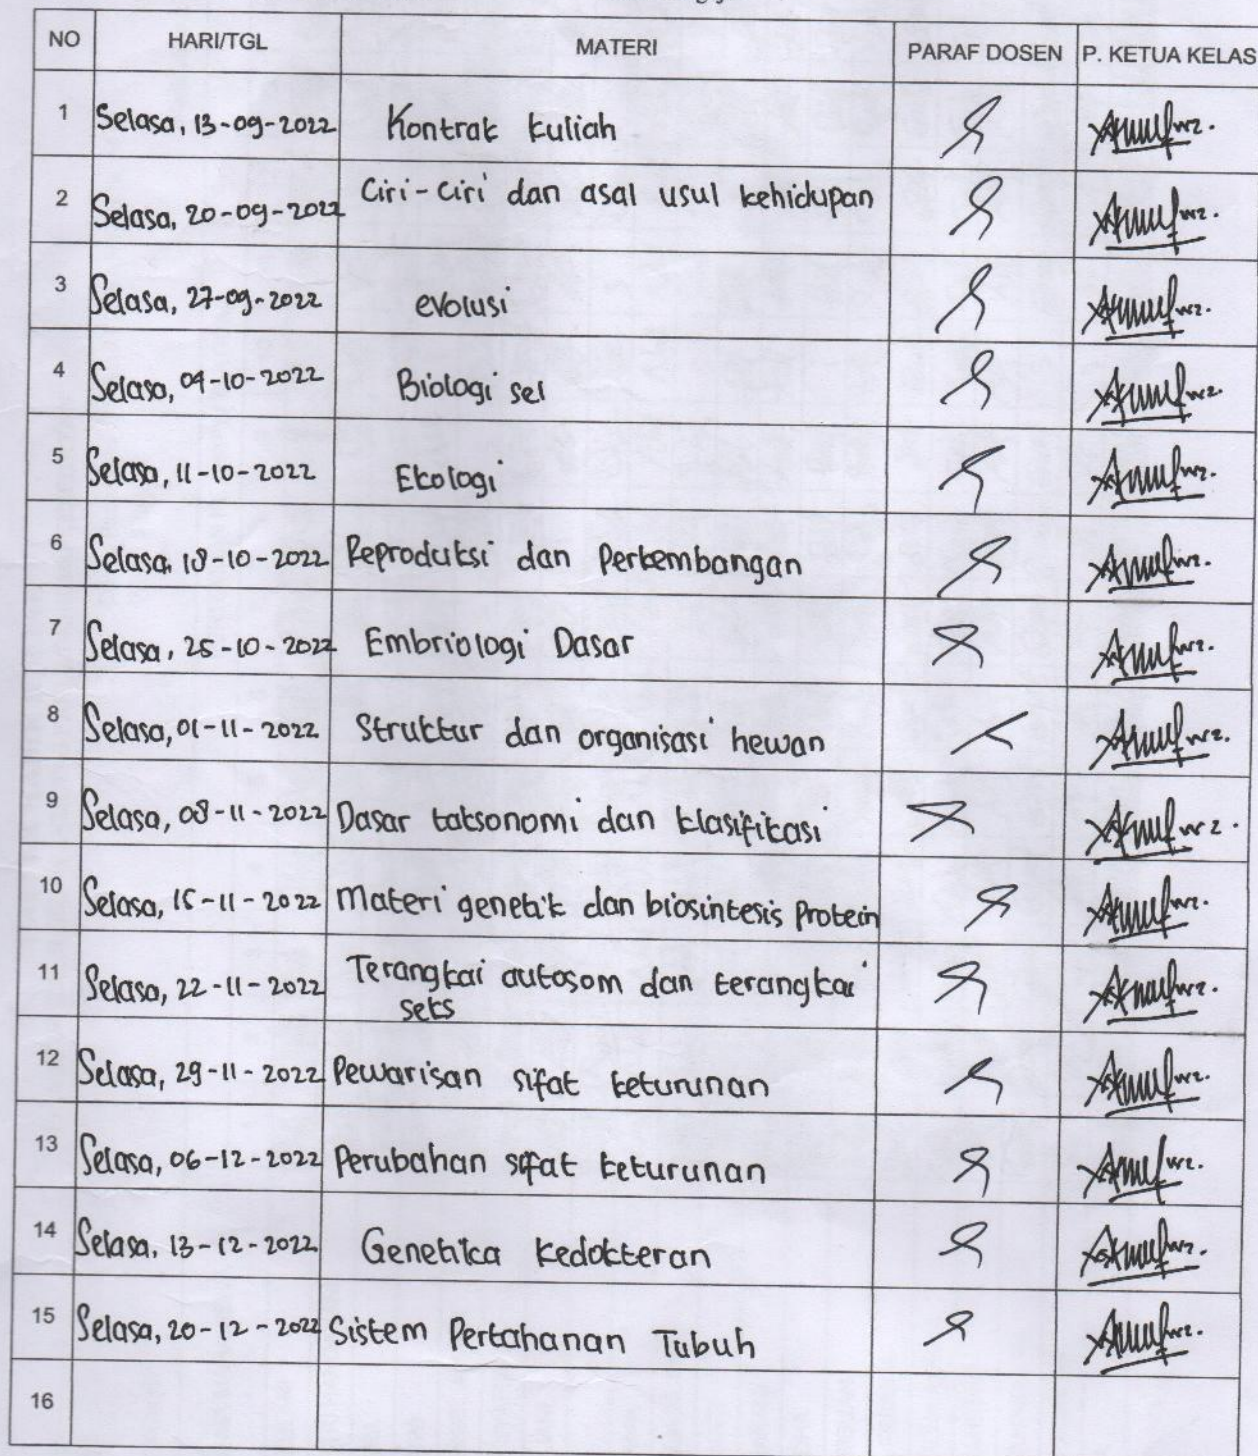 NO HARI/TGL MATERI PARAF DOSEN P. KETUA KELAS
1 Selasa, 13-09-2022 Kontrak kuliah
2 Selasa, 20-09-2022 Ciri-ciri dan asal usul kehidupan
3 Selasa, 27-09-2022 evolusi
4 Selasa, 04-10-2022 Biologi sel
5 Selasa, 11-10-2022 Ekologi
6 Selasa, 18-10-2022 Reproduksi dan Perkembangan
7 Selasa, 25-10-2022 Embriologi Dasar
8 Selasa, 01-11-2022 Struktur dan organisasi hewan
9 Selasa, 08-11-2022 Dasar taksonomi dan klasifikasi
10 Selasa, 15-11-2022 Materi genetik dan biosintesis Protein
11 Selasa, 22-11-2022 Terangkai autosom dan terangkai
seks
12 Selasa, 29-11-2022 Pewarisan sifat keturunan
13 Selasa, 06-12-2022 Perubahan sifat keturunan
14 Selasa, 13-12-2022 Genetika Kedokteran
15 Selasa, 20-12-2022 Sistem Pertahanan Tubuh
16